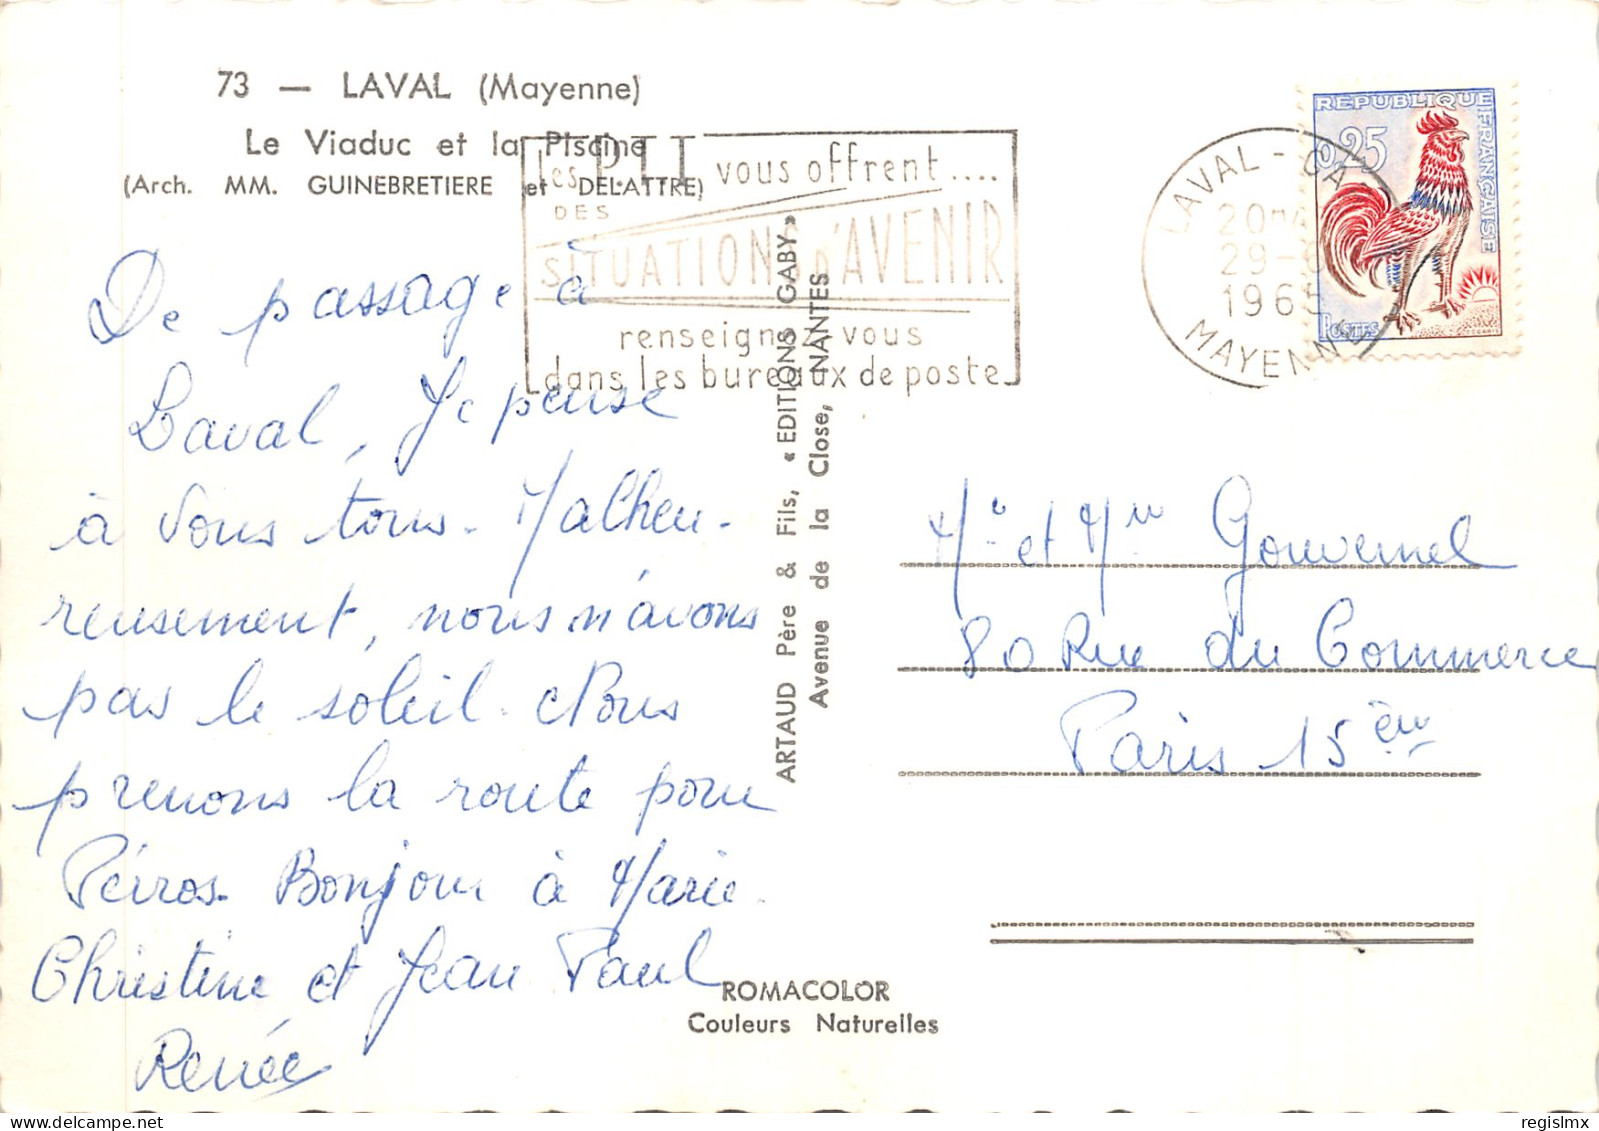 73 — LAVAL (Mayenne)
Le Viaduc et la Piscine
(Arch. MM. GUINEBRETIERE et DELATTRE)
les PTT vous offrent....
DES
SITUATIONS d'AVENIR
renseignez vous
dans les bureaux de poste
LAVAL - GA
29-6
1965
MAYENNE
REPUBLIQUE FRANÇAISE
0,25
POSTES
De passage à
Laval, Je pense
à vous tous. Malheu-
reusement, nous n'avons
pas le soleil. Nous
prenons la route pour
Péiros. Bonjour à Marie-
Christine et Jean Paul
Renée
ARTAUD Père & Fils, « EDITIONS GABY »
Avenue de la Close, NANTES
Mr et Mme Gouvernel
80 Rue du Commerce
Paris 15ème
ROMACOLOR
Couleurs Naturelles
regislmx